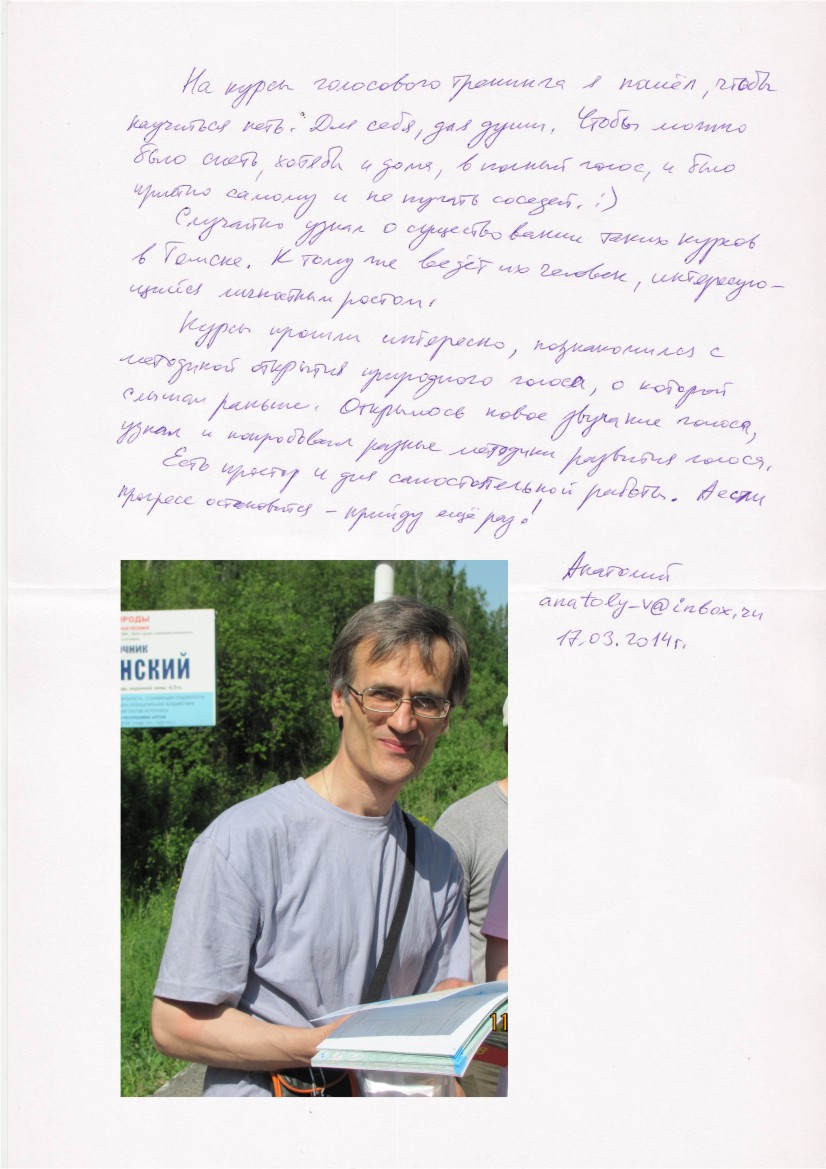 На курсы голосового тренинга я пошёл, чтобы
научиться петь. Для себя, для души. Чтобы можно
было спеть, хотябы и дома, в полный голос, и было
приятно самому и не пугать соседей. :)
Случайно узнал о существовании таких курсов
в Томске. К тому же ведёт их человек, интересую-
щийся личностным ростом.
Курсы прошли интересно, познакомился с
методикой открытия природного голоса, о которой
слышал раньше. Открылось новое звучание голоса,
узнал и попробовал разные методики развития голоса.
Есть простор и для самостоятельной работы. А если
прогресс остановится – прийду ещё раз!
Анатолий
anatoly_v@inbox.ru
17.03.2014г.
РОДЫ
ЧНИК
НСКИЙ
11